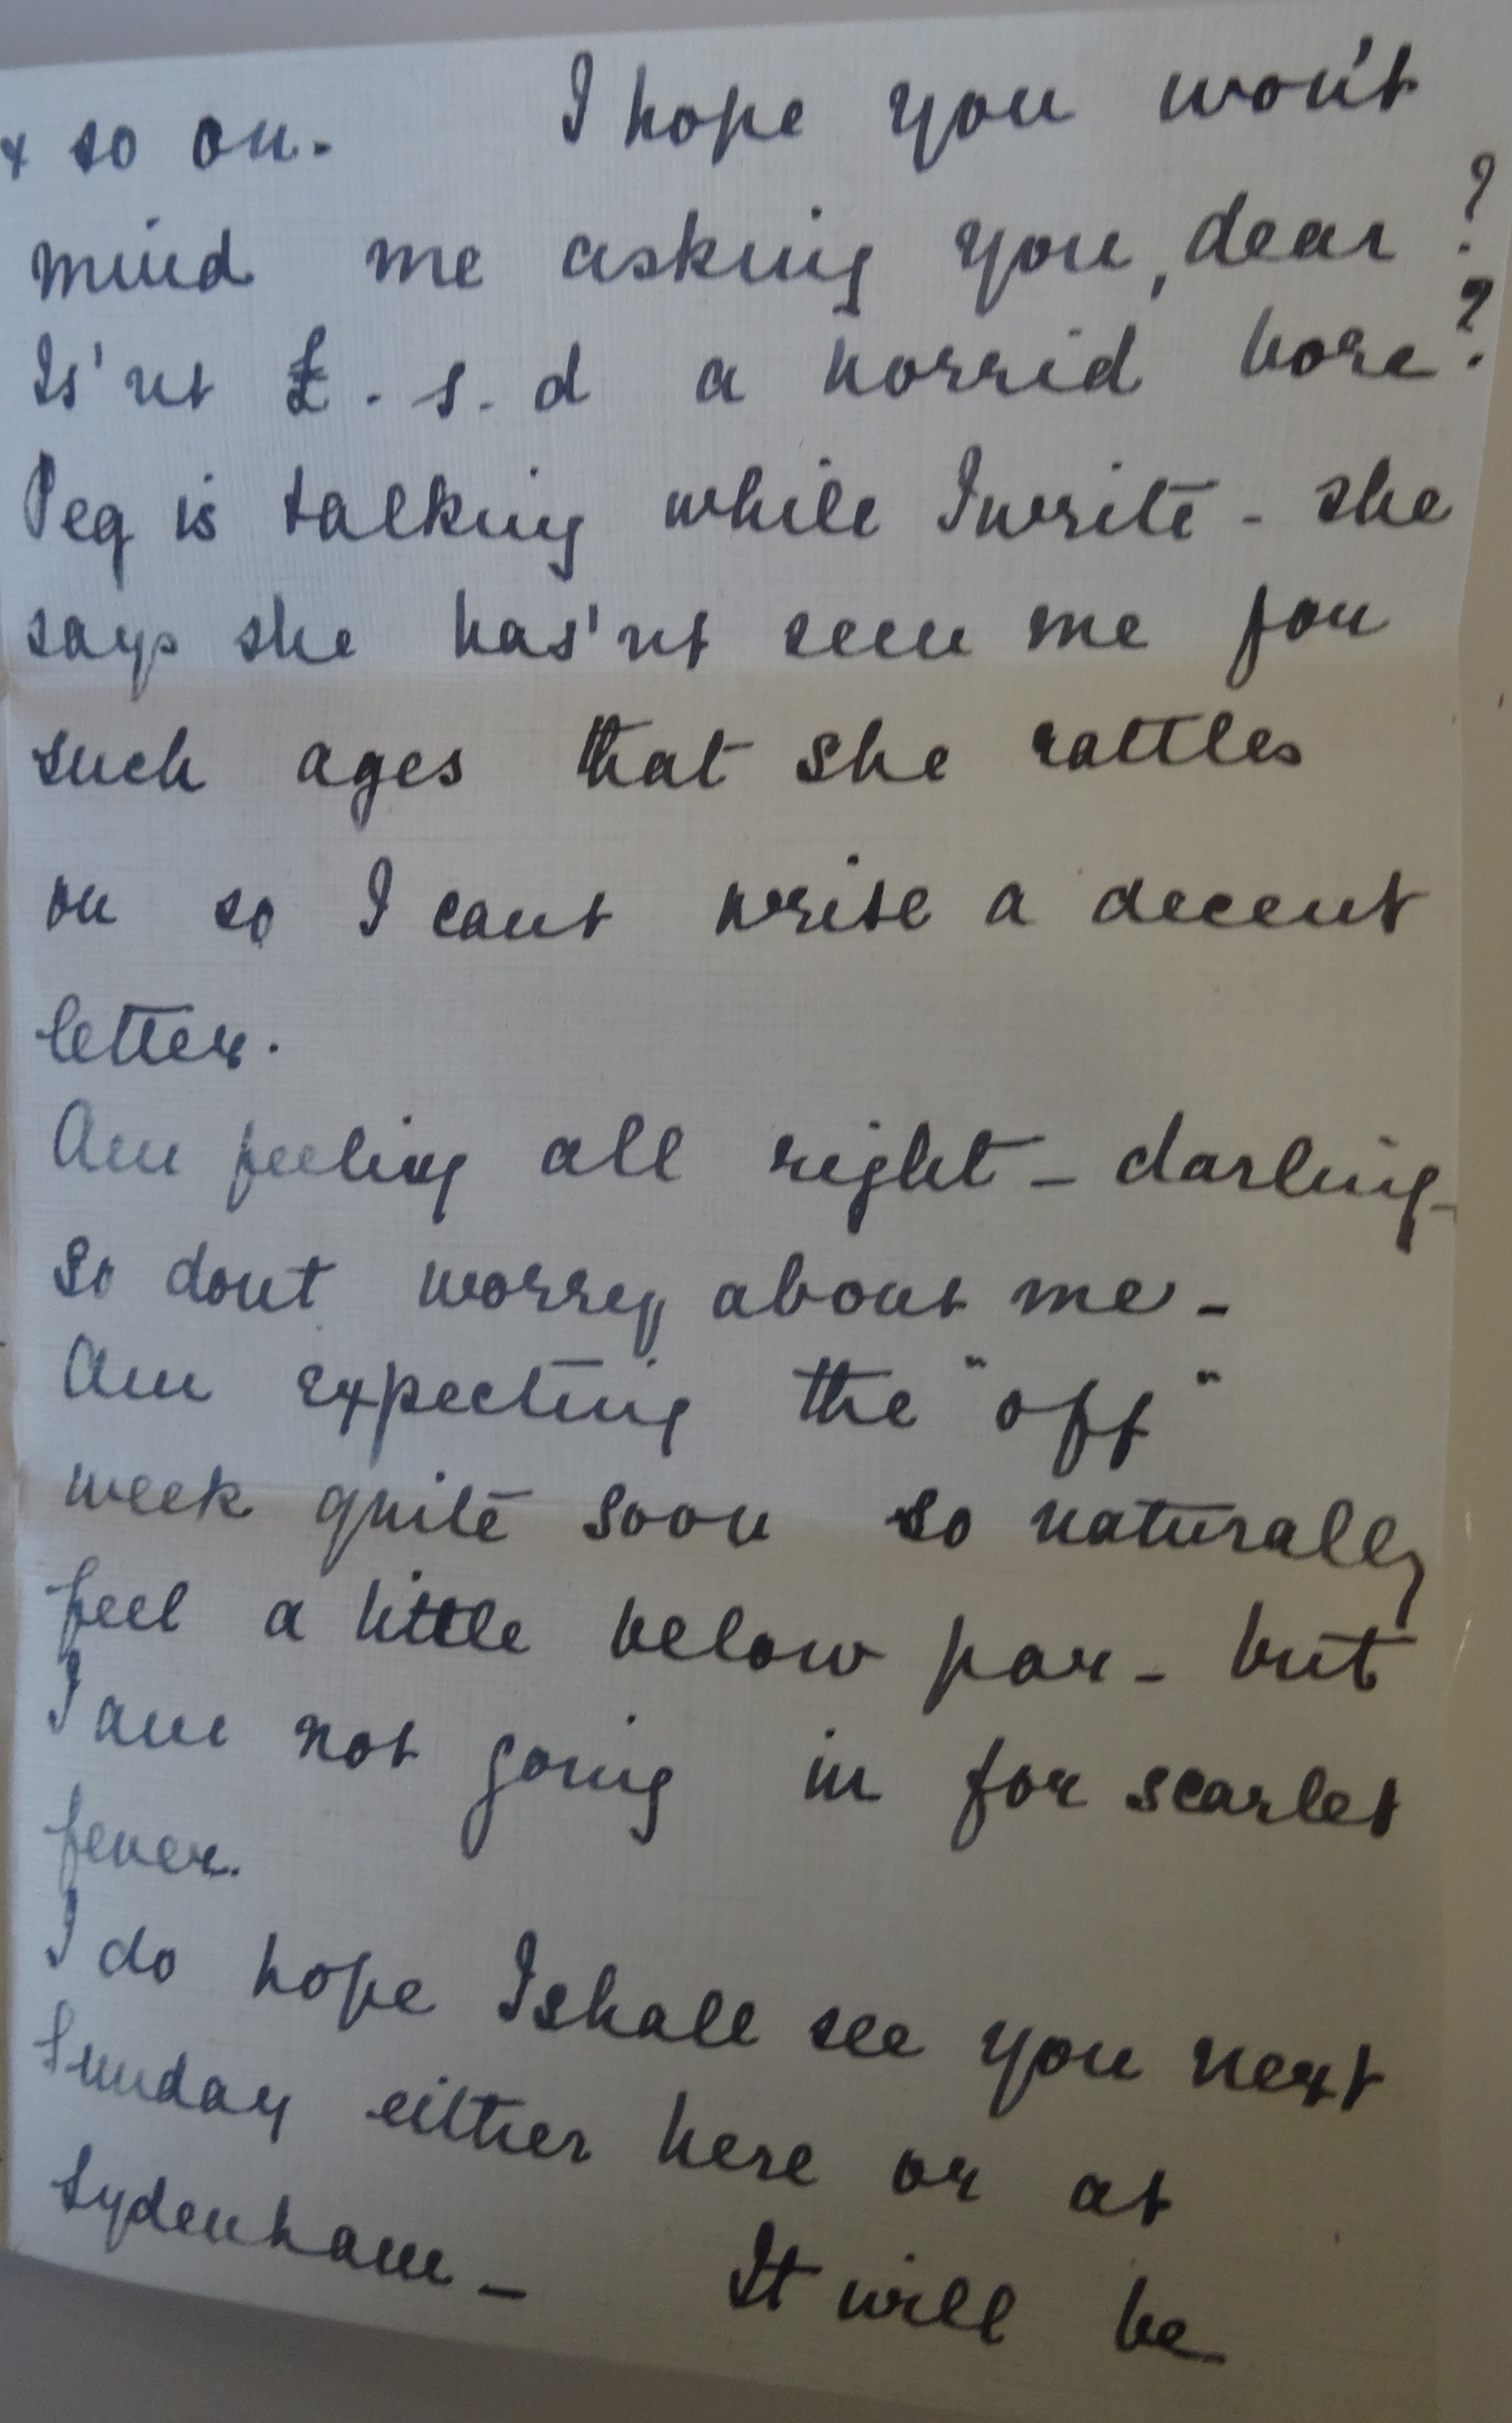 & so on. I hope you won't
mind me asking you, dear?
Is'nt £. s. d a horrid bore?
Peg is talking while I write - she
says she has'nt seen me for
such ages that she rattles
on so I cant write a decent
letter.
Am feeling all right - darling -
so dont worry about me -
Am expecting the "off"
week quite soon so naturally
feel a little below par - but
I am not going in for scarlet
fever.
I do hope I shall see you next
Sunday either here or at
Sydenham - It will be